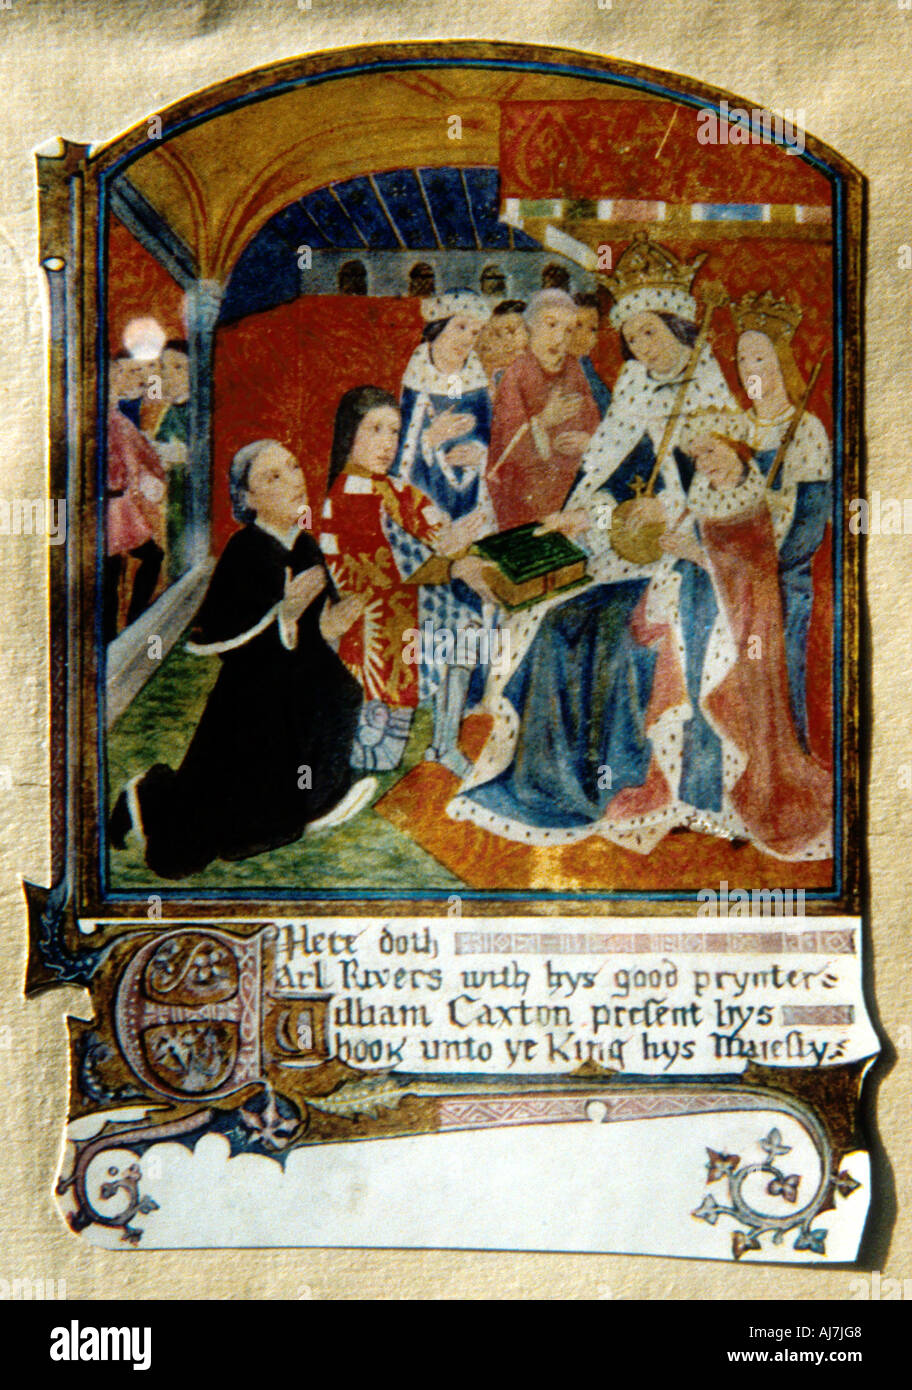 Here doth
Earl Rivers with hys good prynter
William Caxton present hys
book unto ye King hys Majesty
alamy
Image ID: AJ7JG8
www.alamy.com